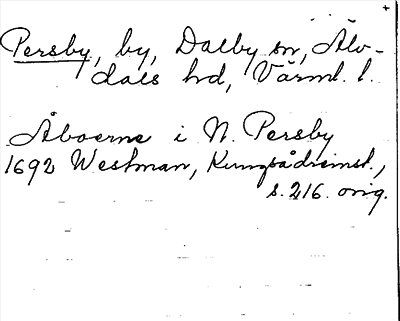 Persby, by, Dalby sn, Älv-
dals hd, Värml. l.
Åboerne i N. Persby
1692 Westman,
s. 216. orig.